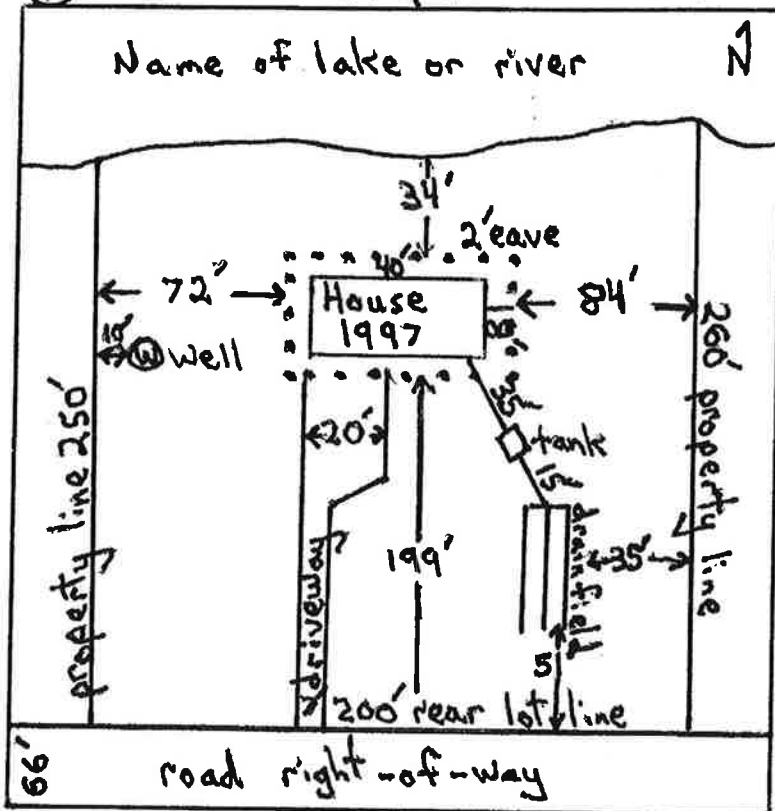 Name of lake or river
N
34'
2' eave
40'
72'
House
1997
84'
10'
W well
260' property line
35'
20'
tank
15'
property line 250'
199'
drainfield
35'
driveway
5
200' rear lot line
66'
road right-of-way